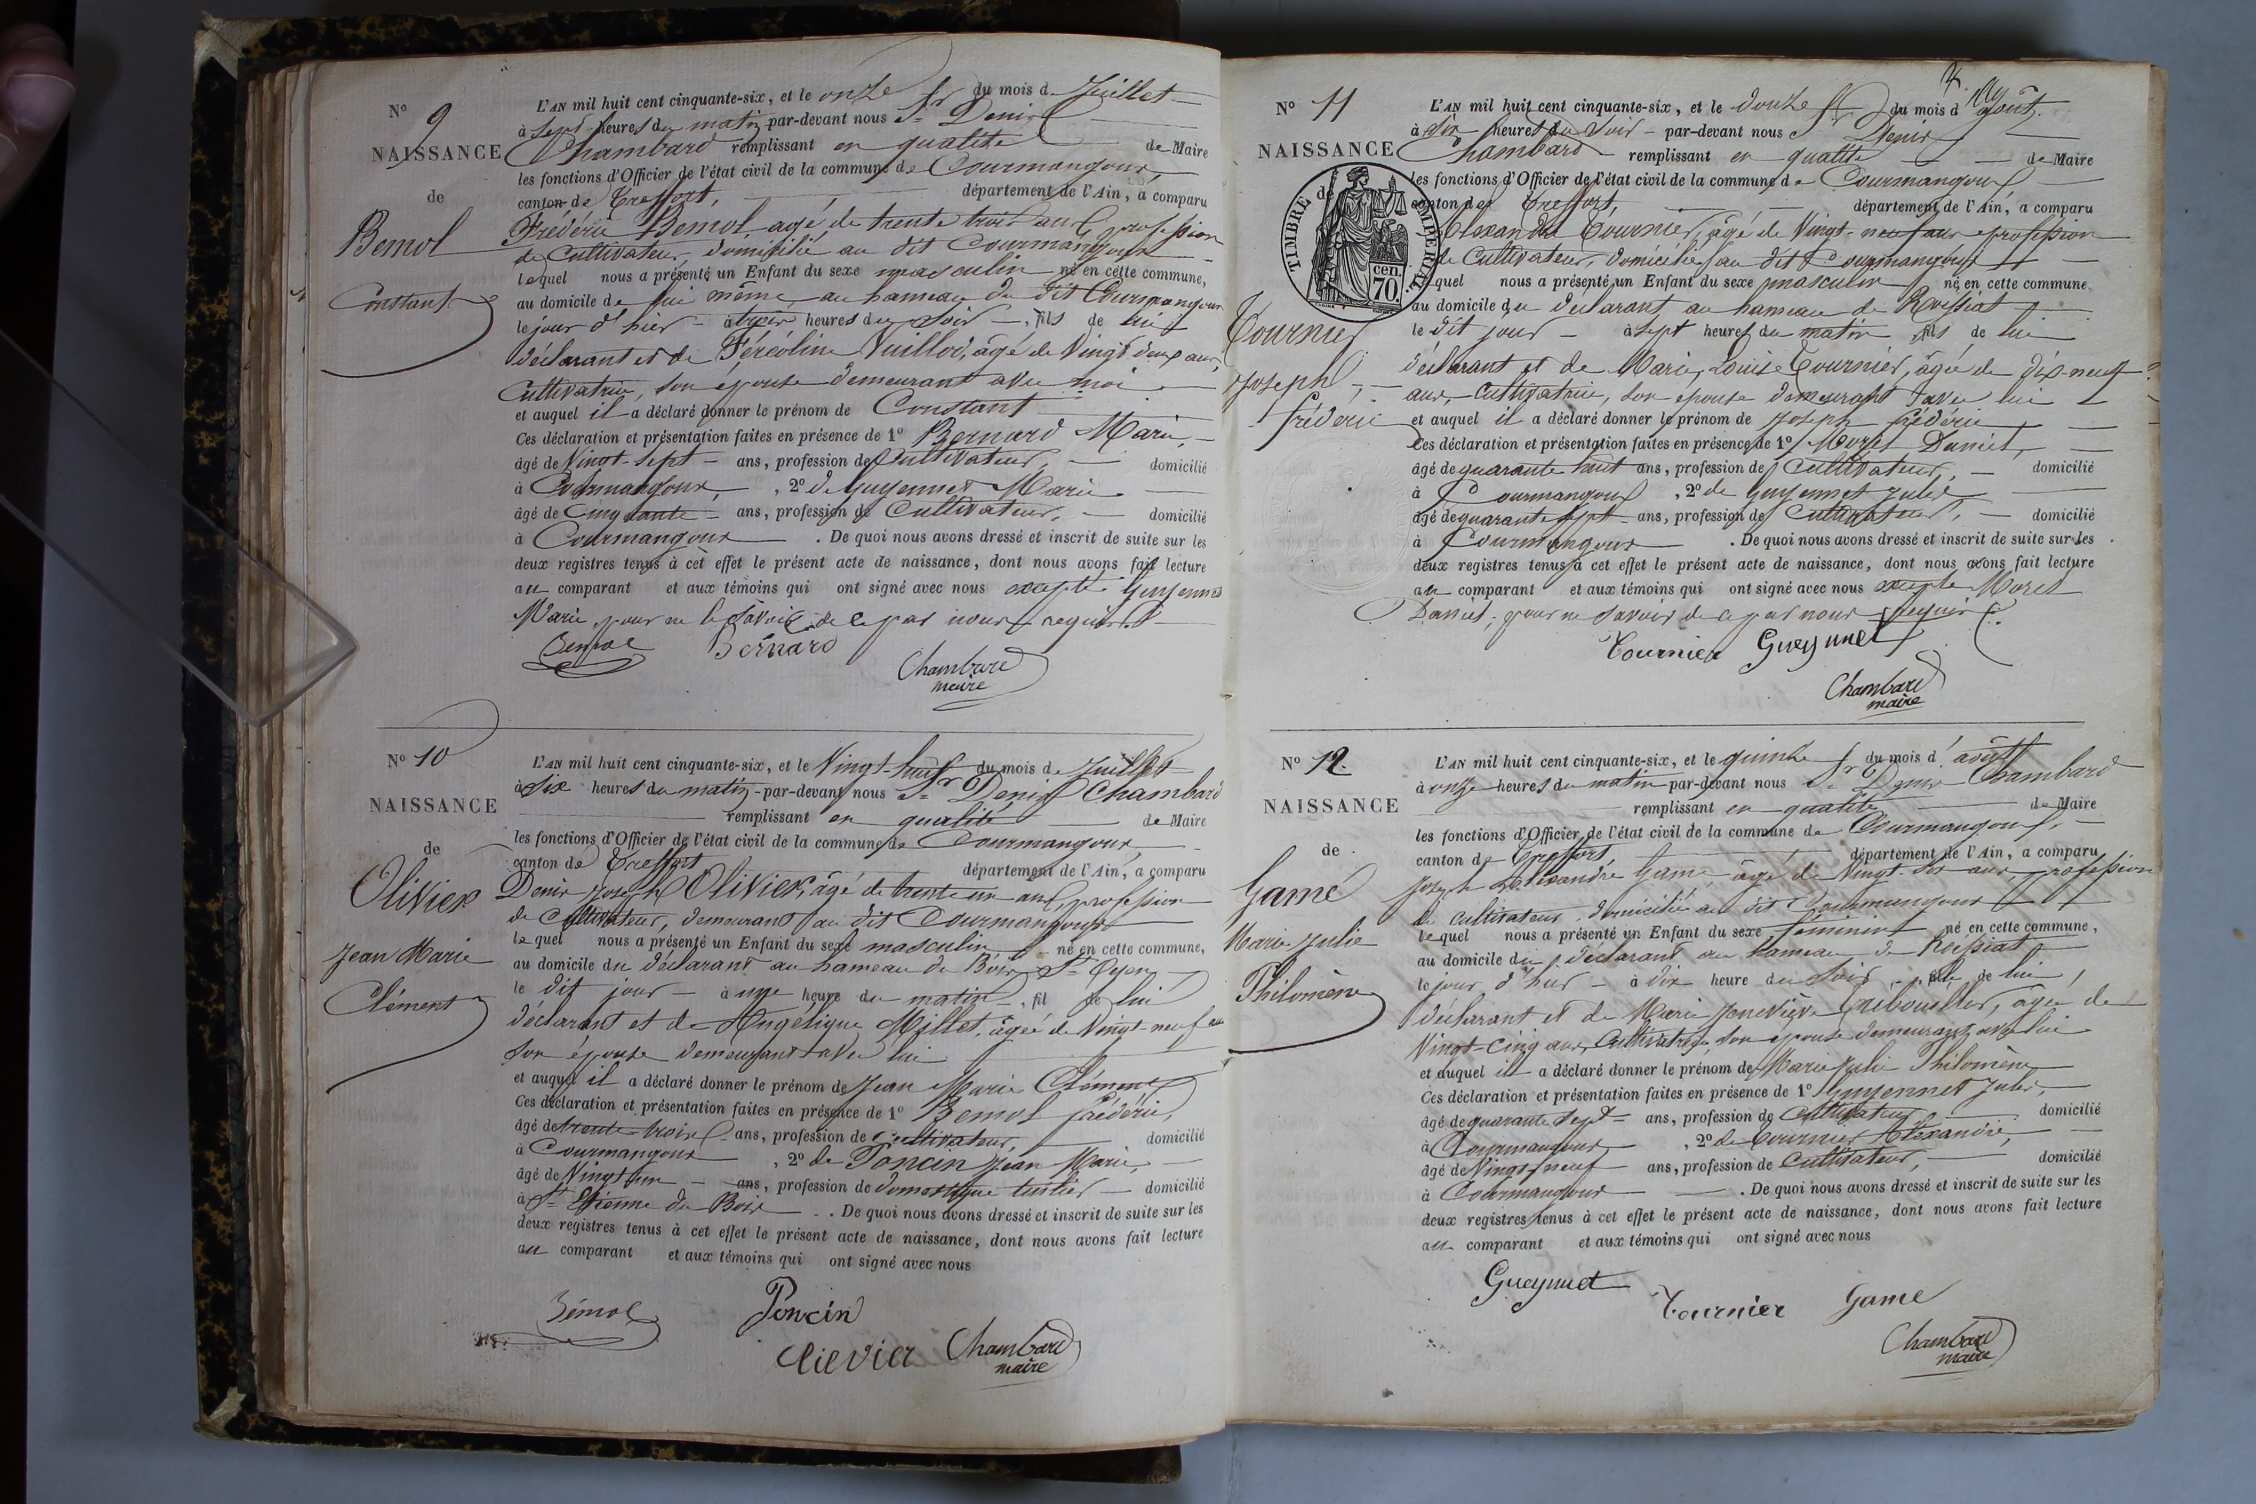 N° 9
NAISSANCE
de
Bemol
Constant
L'AN mil huit cent cinquante-six, et le onze du mois de Juillet
à sept heures du matin par-devant nous Sr Denis
Chambard remplissant en qualité de Maire
les fonctions d'Officier de l'état civil de la commune de Courmangoux,
canton de Treffort, département de l'Ain, a comparu
Frédéric Bemol agé de trente trois ans profession
de Cultivateur, domicilié au dit Courmangoux
lequel nous a présenté un Enfant du sexe masculin né en cette commune,
au domicile de lui même au hameau du dit Courmangoux
le jour d'hier à heures du soir, fils de lui
déclarant et de Vuillod, âgée de Vingt deux ans,
Cultivatrice, son épouse demeurant avec moi
et auquel il a déclaré donner le prénom de Constant
Ces déclaration et présentation faites en présence de 1° Bernard Marie,
âgé de Vingt-sept ans, profession de Cultivateur, domicilié
à Courmangoux, 2° de Guyennet Marie
âgé de Cinquante ans, profession de Cultivateur, domicilié
à Courmangoux. De quoi nous avons dressé et inscrit de suite sur les
deux registres tenus à cet effet le présent acte de naissance, dont nous avons fait lecture
au comparant et aux témoins qui ont signé avec nous excepté Guyennet
Marie pour ne le savoir de ce par nous requis
Bemol Bernard
Chambard
maire
N° 10
NAISSANCE
de
Olivier
Jean Marie
Clément
L'AN mil huit cent cinquante-six, et le Vingt-huit du mois de Juillet
à Six heures du matin par-devant nous Sr Denis Chambard
remplissant en qualité de Maire
les fonctions d'Officier de l'état civil de la commune de Courmangoux,
canton de Treffort département de l'Ain, a comparu
Denis Joseph Olivier, âgé de trente un ans, profession
de Cultivateur, demeurant au dit Courmangoux
lequel nous a présenté un Enfant du sexe masculin né en cette commune,
au domicile du déclarant au hameau de
le dit jour à une heure du matin, fil de lui
déclarant et de Angélique Millet, âgée de Vingt-neuf ans
son épouse demeurant avec lui
et auquel il a déclaré donner le prénom de Jean Marie Clément
Ces déclaration et présentation faites en présence de 1° Bemol frédéric,
âgé de trente-trois ans, profession de Cultivateur, domicilié
à Courmangoux, 2° de Poncin Jean Marie,
âgé de Vingt un ans, profession de domestique domicilié
à St Etienne du Bois. De quoi nous avons dressé et inscrit de suite sur les
deux registres tenus à cet effet le présent acte de naissance, dont nous avons fait lecture
au comparant et aux témoins qui ont signé avec nous
Bémol Poncin
Olievier Chambard
maire
N° 11
NAISSANCE
de
TIMBRE IMPERIAL
70. cen.
Tournier
Joseph
frédéric
L'AN mil huit cent cinquante-six, et le douze du mois d'août
à six heures du soir par-devant nous Sr Denis
Chambard remplissant en qualité de Maire
les fonctions d'Officier de l'état civil de la commune de Courmangoux
canton de Treffort, département de l'Ain, a comparu
Alexandre Tournier, âgé de Vingt-neuf ans profession
de Cultivateur, domicilié au dit Courmangoux
lequel nous a présenté un Enfant du sexe masculin né en cette commune
au domicile du déclarant au hameau de Roissiat
le dit jour à sept heures du matin, fils de lui
déclarant et de Marie Louise Tournier, âgée de dix-neuf
ans, Cultivatrice, son épouse demeurant avec lui
et auquel il a déclaré donner le prénom de Joseph frédéric
Ces déclaration et présentation faites en présence de 1° Morel Daniel,
âgé de quarante huit ans, profession de Cultivateur, domicilié
à Courmangoux, 2° de Guyennet Jules
âgé de quarante sept ans, profession de Cultivateur, domicilié
à Courmangoux. De quoi nous avons dressé et inscrit de suite sur les
deux registres tenus à cet effet le présent acte de naissance, dont nous avons fait lecture
au comparant et aux témoins qui ont signé avec nous excepté Morel
Daniel, pour ne savoir de ce par nous requis.
Tournier Gueynnet
Chambard
maire
N° 12.
NAISSANCE
de
Gamé
Marie Julie
Philomène
L'AN mil huit cent cinquante-six, et le quinze du mois d'août
à onze heures du matin par-devant nous Sr Denis Chambard
remplissant en qualité de Maire
les fonctions d'Officier de l'état civil de la commune de Courmangoux,
canton de Treffort département de l'Ain, a comparu
Joseph Alexandre Gamé, âgé de Vingt ans profession
de cultivateur domicilié au dit Courmangoux
lequel nous a présenté un Enfant du sexe féminin né en cette commune,
au domicile du déclarant au hameau de Roissiat
le jour d'hier à dix heure du soir, fille de lui
déclarant et de Marie Jeneviève âgée de
Vingt-Cinq ans, Cultivatrice, son épouse demeurant avec lui
et auquel il a déclaré donner le prénom de Marie Julie Philomène
Ces déclaration et présentation faites en présence de 1° Guyennet Jules,
âgé de quarante sept ans, profession de Cultivateur domicilié
à Courmangoux, 2° de Tournier Alexandre,
âgé de Vingt neuf ans, profession de Cultivateur, domicilié
à Courmangoux. De quoi nous avons dressé et inscrit de suite sur les
deux registres tenus à cet effet le présent acte de naissance, dont nous avons fait lecture
au comparant et aux témoins qui ont signé avec nous
Gueynnet Tournier Game
Chambard
maire